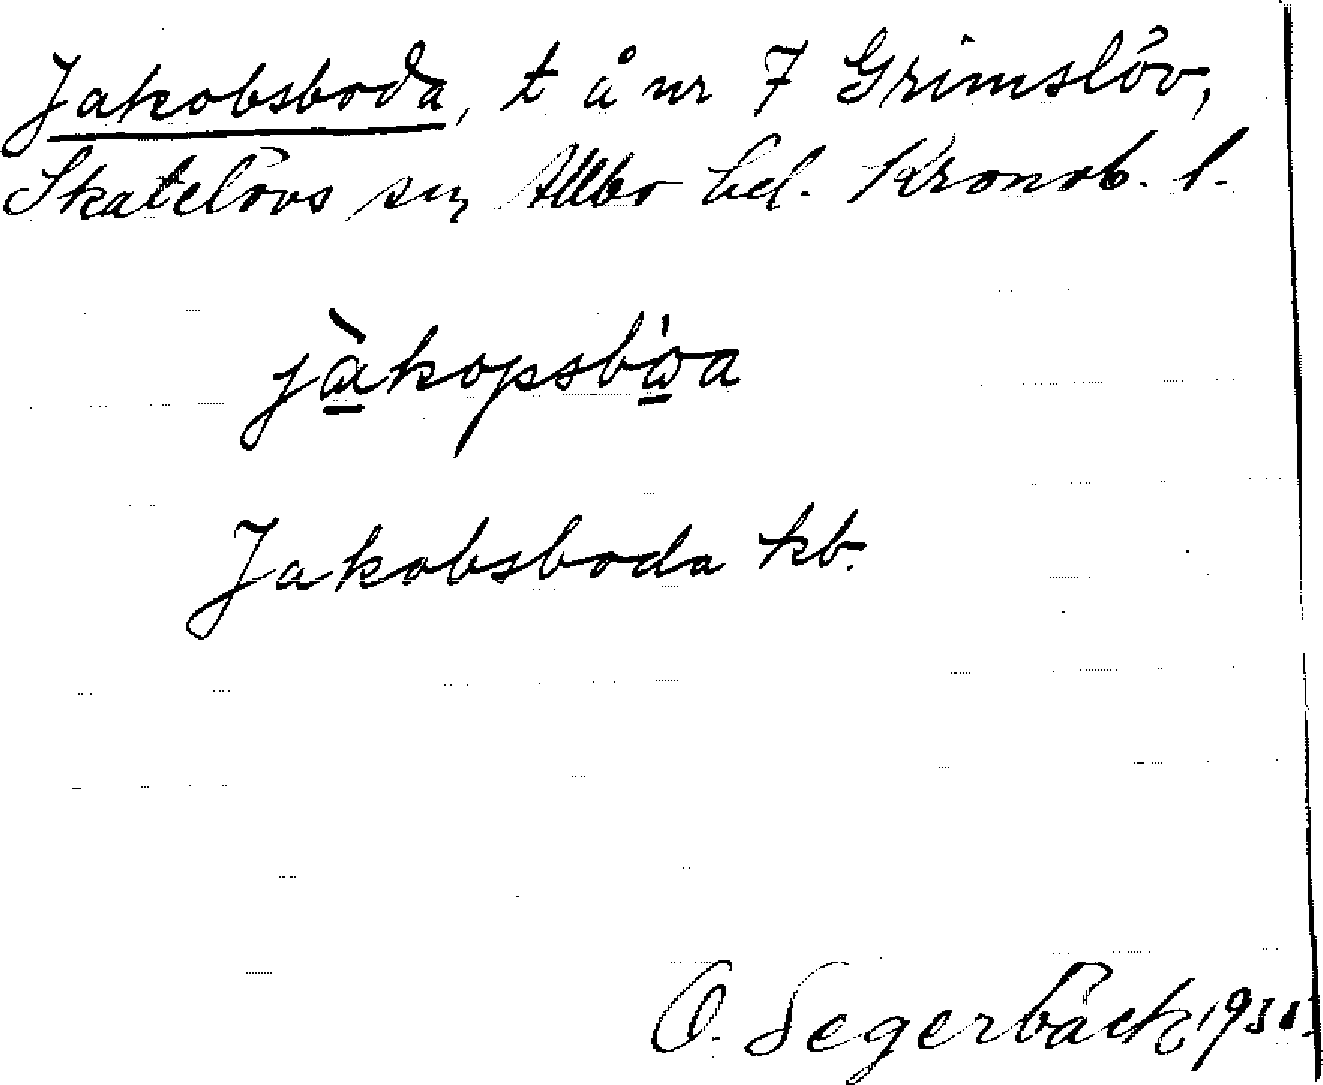 Jakobsboda, t å nr 7 Grimslöv,
Skatelövs sn, Allbo hd. Kronob. l.
jàkopsbẁa
Jakobsboda kb.
O. Segerbäck